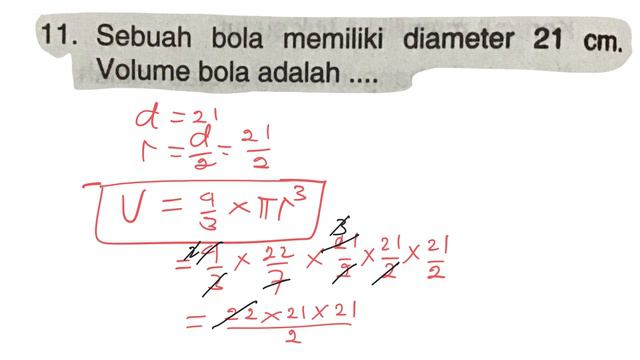 11. Sebuah bola memiliki diameter 21 cm.
Volume bola adalah ....
d = 21
r = d/2 = 21/2
V = 4/3 × πr³
= 4/3 × 22/7 × 21/2 × 21/2 × 21/2
= 22 × 21 × 21 / 2